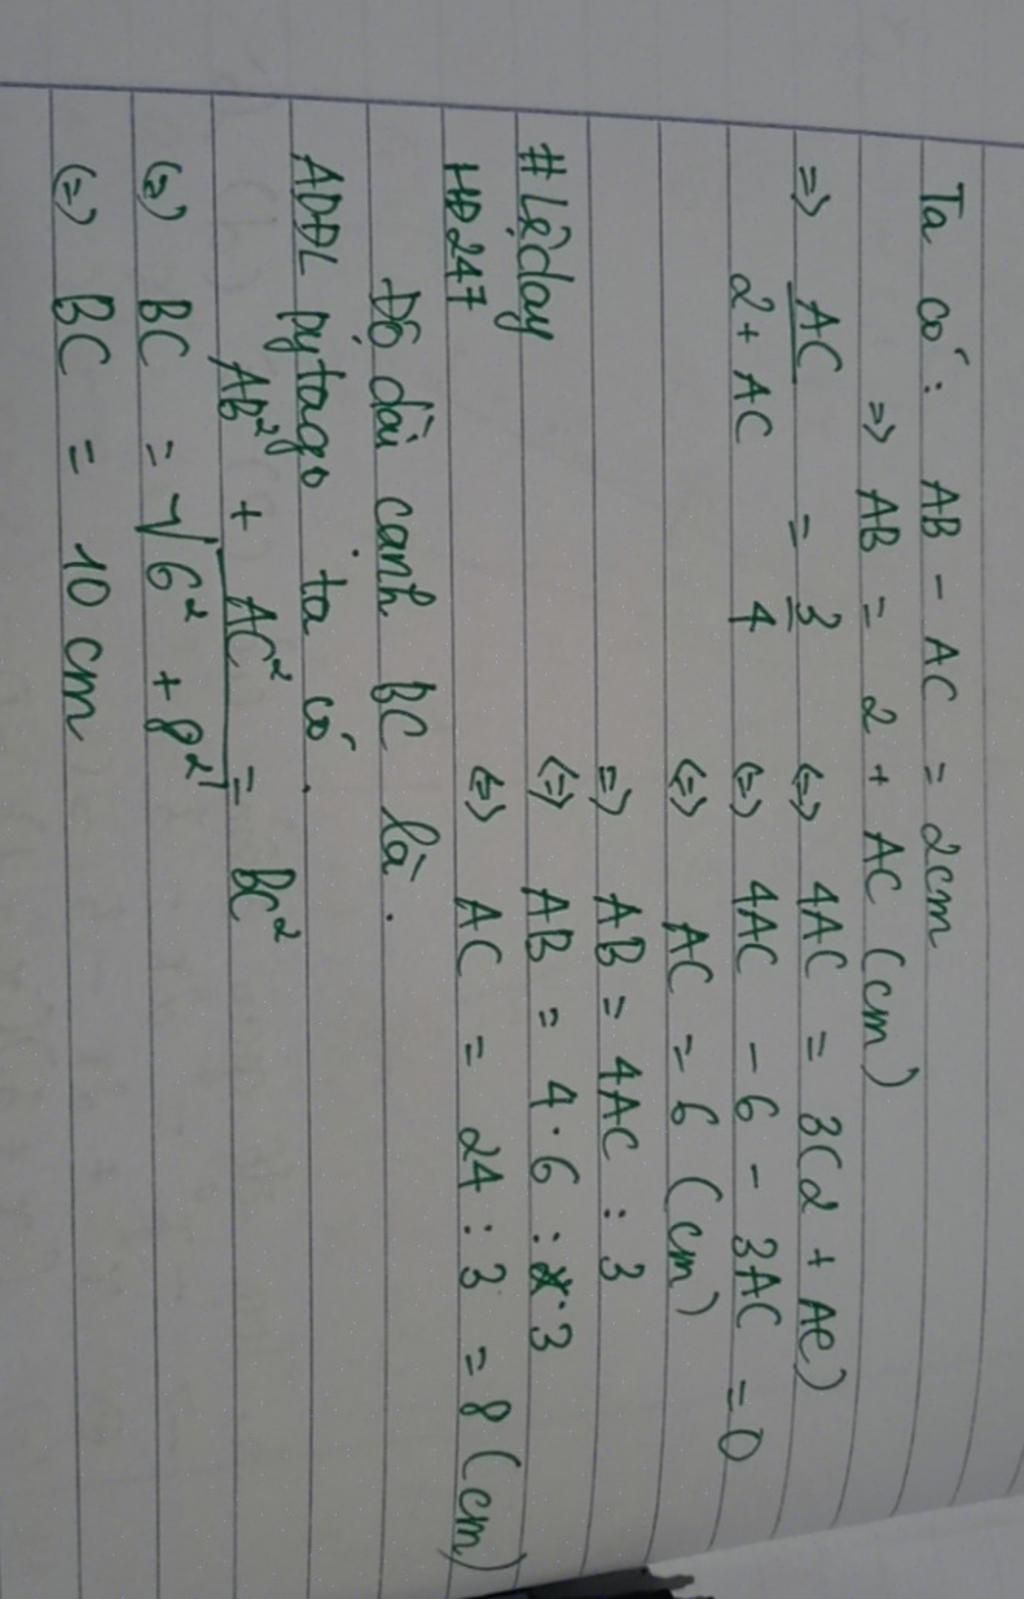 Ta có: AB - AC = 2cm
=> AB = 2 + AC (cm)
=> AC/2 + AC = 3/4 <=> 4AC = 3(2 + AC)
<=> 4AC - 6 - 3AC = 0
<=> AC = 6 (cm)
=> AB = 4AC : 3
#Lệday <=> AB = 4.6 : 3
HĐ247 <=> AC = 24 : 3 = 8 (cm)
Độ dài cạnh BC là.
ADĐL pytago ta có.
AB² + AC² = BC²
(=) BC = √6² + 8²
(=) BC = 10 cm